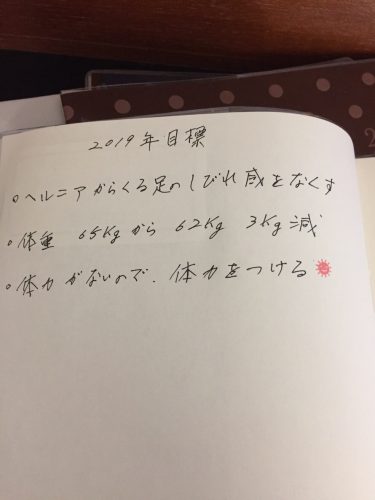 2019年目標
・ヘルニアからくる足のしびれ感をなくす
・体重 65Kgから 62Kg 3Kg減
・体力がないので、体力をつける
2